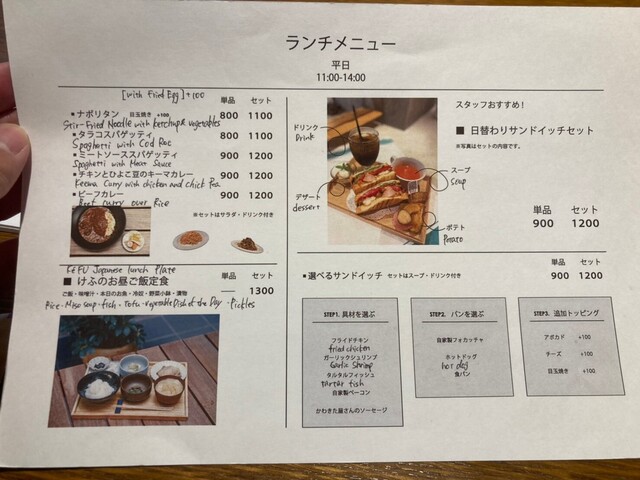 ランチメニュー
平日
11:00-14:00
[with Fried Egg] +100
単品 セット
■ナポリタン 目玉焼き +100 800 1100
Stir-Fried Noodle with ketchup & vegetables
■タラコスパゲッティ 800 1100
Spaghetti with Cod Roe
■ミートソーススパゲッティ 900 1200
Spaghetti with Meat Sauce
■チキンとひよこ豆のキーマカレー 900 1200
Keema Curry with chicken and chick Pea
■ビーフカレー 900 1200
Beef curry over Rice
※セットはサラダ・ドリンク付き
KEFU Japanese lunch Plate
単品 セット
■ けふのお昼ご飯定食 — 1300
ご飯・味噌汁・本日のお魚・冷奴・野菜小鉢・漬物
Rice・Miso soup・fish・Tofu・vegetable Dish of the Day・Pickles
スタッフおすすめ！
■ 日替わりサンドイッチセット
※写真はセットの内容です。
ドリンク
Drink
スープ
soup
デザート
dessert
ポテト
Potato
単品 セット
900 1200
■選べるサンドイッチ セットはスープ・ドリンク付き 900 1200
STEP1. 具材を選ぶ
フライドチキン
fried chicken
ガーリックシュリンプ
Garlic shrimp
タルタルフィッシュ
tartar fish
自家製ベーコン
かわきた屋さんのソーセージ
STEP2. パンを選ぶ
自家製フォカッチャ
ホットドッグ
hot dog
食パン
STEP3. 追加トッピング
アボカド +100
チーズ +100
目玉焼き +100